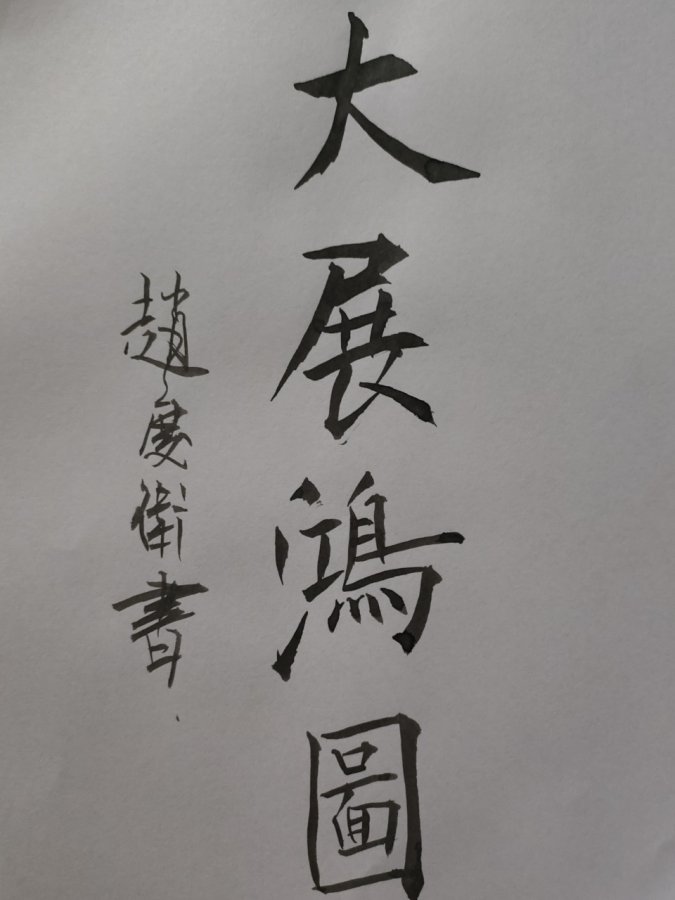 大展鴻圖
趙度衛書